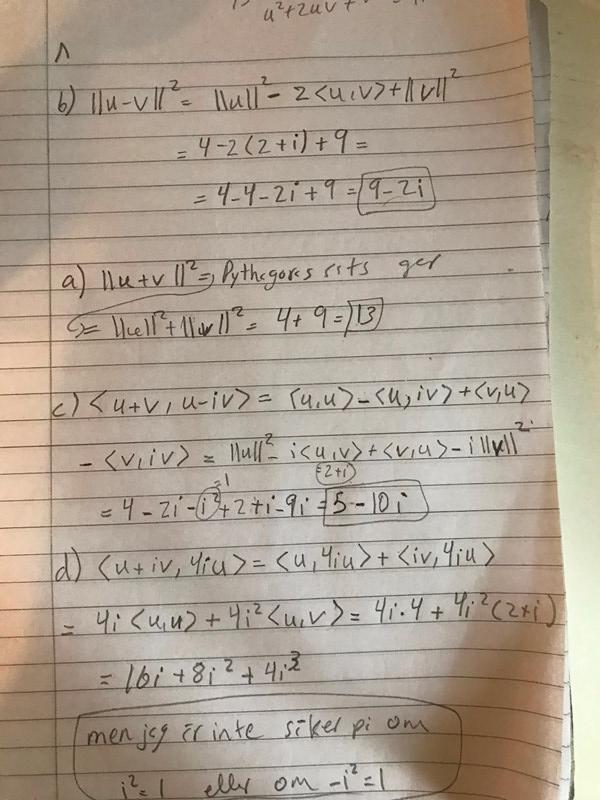 u²+2uv+
1
b) ||u-v||² = ||u||² - 2<u,v> + ||v||²
= 4-2(2+i)+9 =
= 4-4-2i+9 = 9-2i
a) ||u+v||² = Pythagoras sats ger
= ||u||²+||v||² = 4+9 = 13
c) <u+v, u-iv> = <u,u> - <u,iv> + <v,u>
- <v,iv> = ||u||² - i<u,v> + <v,u> - i||v||²
=1 (2+i)
= 4-2i-i²+2+i-9i = 5-10i
d) <u+iv, 4iu> = <u,4iu> + <iv,4iu>
= 4i<u,u> + 4i²<u,v> = 4i·4 + 4i²(2+i)
= 16i + 8i² + 4i³
men jag är inte säker på om
i²=1 eller om -i²=1